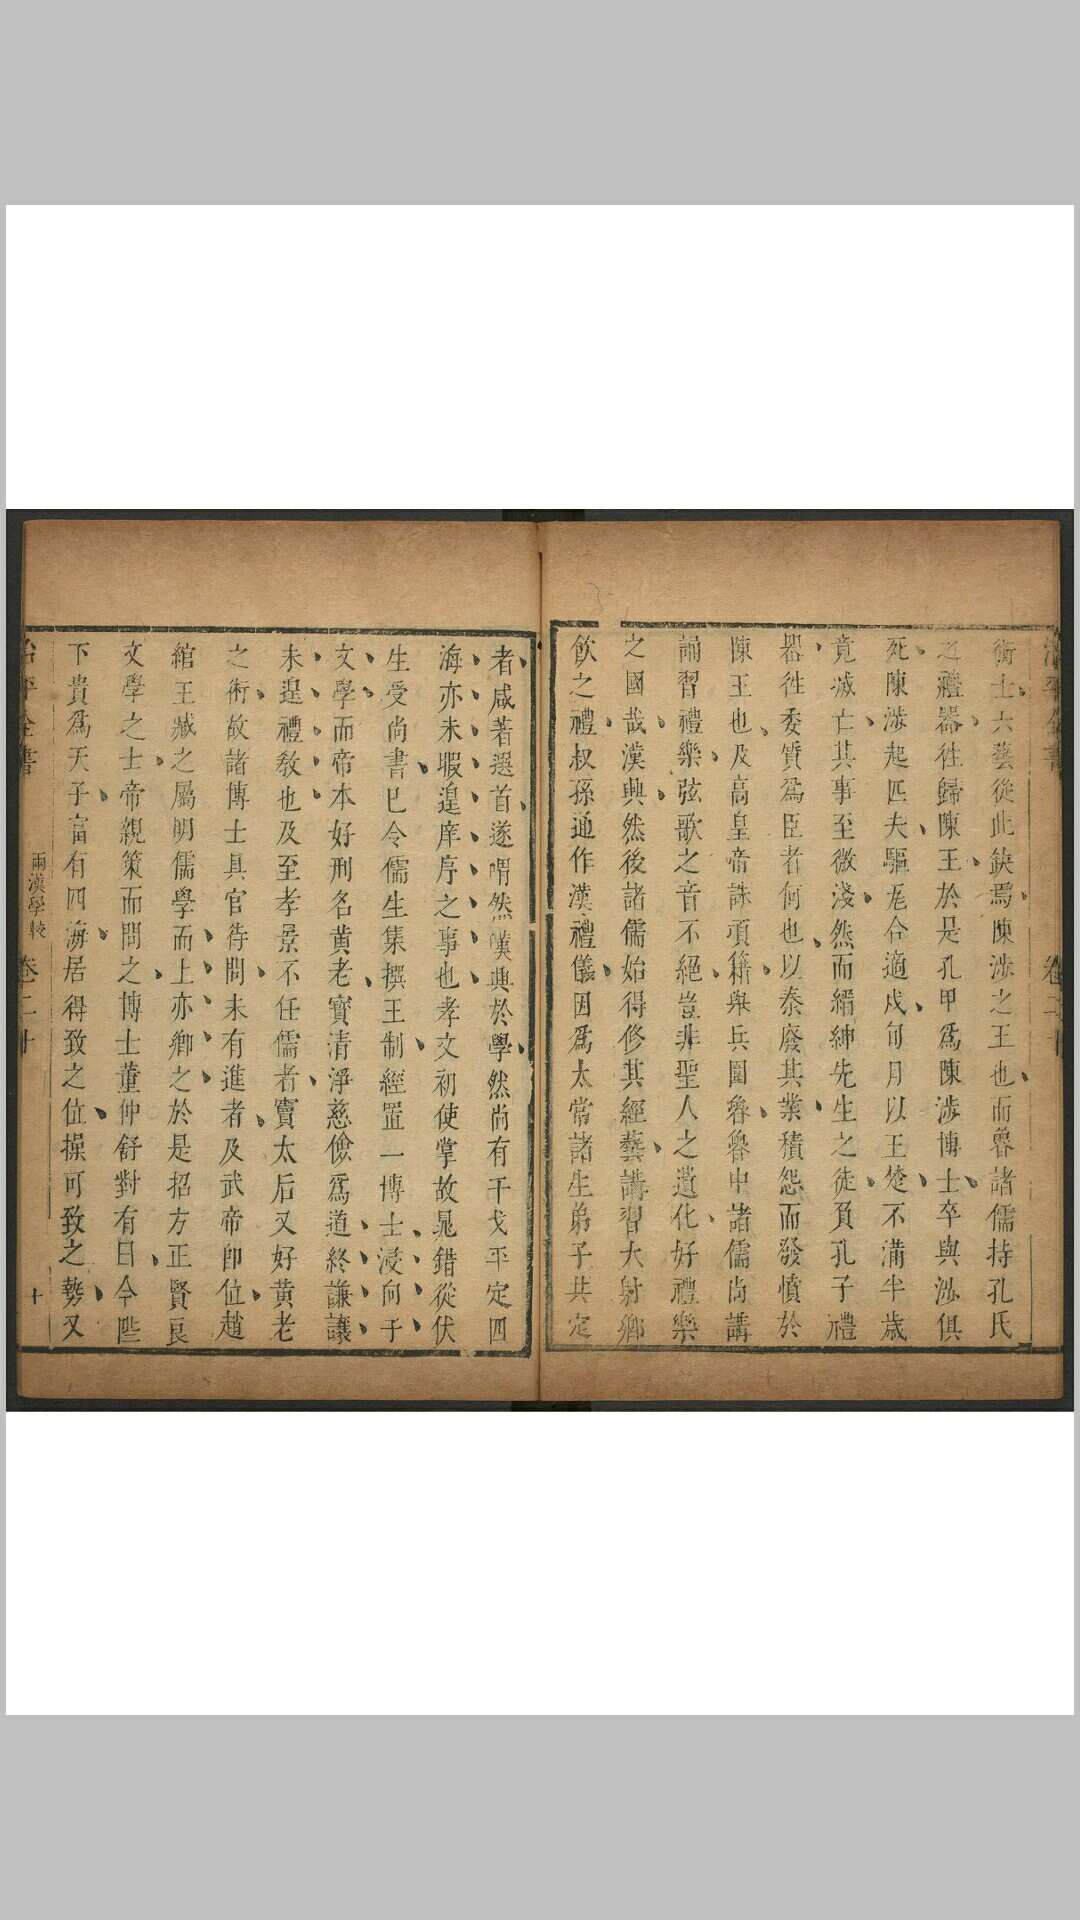 術士六藝從此缺焉陳涉之王也而魯諸儒持孔氏
之禮器往歸陳王於是孔甲爲陳涉博士卒與涉俱
死陳涉起匹夫驅尾合適戍旬月以王楚不滿半歲
竟滅亡其事至微淺然而縉紳先生之徒負孔子禮
器徃委質爲臣者何也以秦廢其業積怨而發憤於
陳王也及高皇帝誅項籍舉兵圍魯魯中諸儒尚講
誦習禮樂弦歌之音不絕豈非聖人之遺化好禮樂
之國哉漢興然後諸儒始得修其經藝講習大射鄉
飲之禮叔孫通作漢禮儀因爲太常諸生弟子共定
者咸著選首遂喟然嘆興於學然尚有干戈平定四
海亦未暇遑庠序之事也孝文初使掌故晁錯從伏
生受尚書已令儒生集撰王制經置一博士浸向于
文學而帝本好刑名黃老實清淨慈儉爲道終謙讓
未遑禮教也及至孝景不任儒者竇太后又好黃老
之術故諸博士具官待問未有進者及武帝卽位趙
綰王臧之屬明儒學而上亦鄉之於是招方正賢良
文學之士帝親策而問之博士董仲舒對有曰今陛
下貴爲天子富有四海居得致之位操可致之勢又
治平全書
兩漢學較
卷二十
十